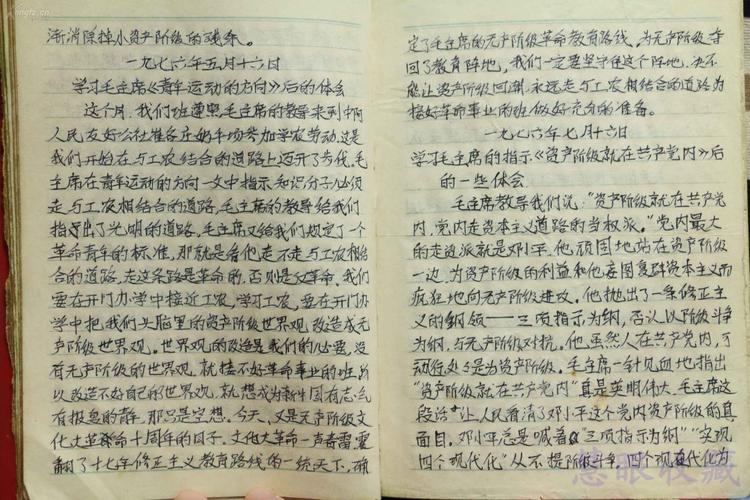 渐消除掉小资产阶级的残余。
一九七六年五月十六日
学习毛主席《青年运动的方向》后的体会
这个月,我们班遵照毛主席的教导来到中阿
人民友好公社维各庄奶牛场参加学农劳动,这是
我们开始在与工农结合的道路上迈开了步伐,毛
主席在青年运动的方向一文中指示知识分子必须
走与工农相结合的道路,毛主席的教导给我们
指出了光明的道路,毛主席又给我们规定了一个
革命青年的标准,那就是看他走不走与工农相结
合的道路,走这条路是革命的,否则是反革命,我们
要在开门办学中接近工农,学习工农,要在开门办
学中把我们头脑里的资产阶级世界观改造成无
产阶级世界观。世界观的改造是我们的必要,没
有无产阶级的世界观,就接不好革命事业的班,所
以改造不好自己的世界观,就想成为新中国有志气
有报负的青年,那只是空想。今天,又是无产阶级文
化大革命十周年的日子,文化大革命一声春雷,震
翻了十七年修正主义教育路线的一统天下,确
定了毛主席的无产阶级革命教育路线,为无产阶级夺
回了教育阵地,我们一定要坚守住这个阵地,决不
能让资产阶级回潮,永远走与工农相结合的道路为
接好革命事业的班做好充分的准备。
一九七六年七月十六日
学习毛主席的指示《资产阶级就在共产党内》后
的一些体会
毛主席教导我们说:“资产阶级就在共产党
内,党内走资本主义道路的当权派。”党内最大
的走资派就是邓小平,他顽固地站在资产阶级
一边,为资产阶级的利益和他妄图复辟资本主义而
疯狂地向无产阶级进攻。他抛出了一条修正主
义的纲领——三项指示为纲,否认以阶级斗争
为纲,与无产阶级对抗。他虽然人在共产党内,可
动行处处是为资产阶级。毛主席一针见血地指出
“资产阶级就在共产党内”真是英明伟大,毛主席这
段话让人民看清了邓小平这个党内资产阶级的真
面目,邓小平总是喊着“三项指示为纲”“实现
四个现代化”从不提阶级斗争,四个现在化为
慧眼收藏